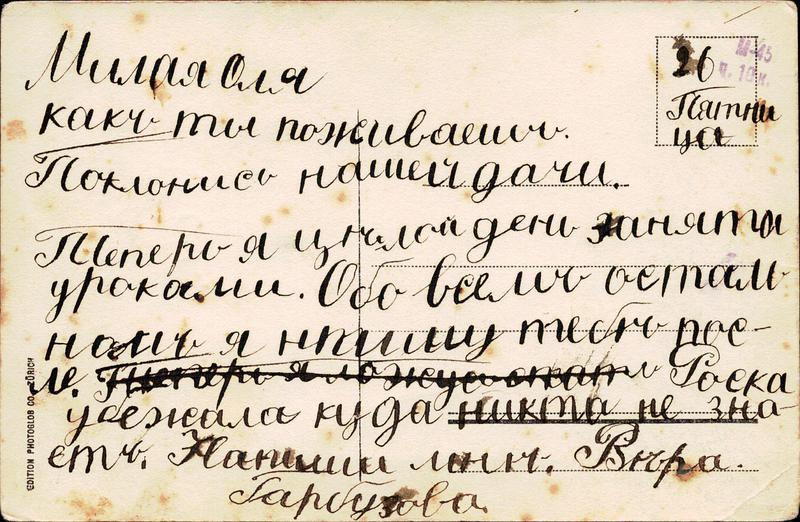 Милая Оля
какъ ты поживаешь.
Поклонись нашей дачи.
Теперь я цѣлой день занята
уроками. Обо всемъ осталь
номъ я нпишу тебѣ пос-
ле. Теперь я ложусь спать Роска
убежала куда никто не зна-
етъ. Напиши мнѣ. Вѣра.
Гарбузова
26
Пятни
ца
EDITION PHOTOGLOB CO. ZÜRICH